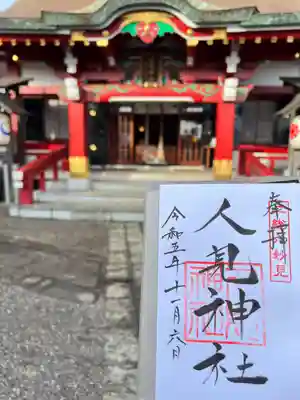 奉拝
妙見
人見神社
令和五年十一月六日